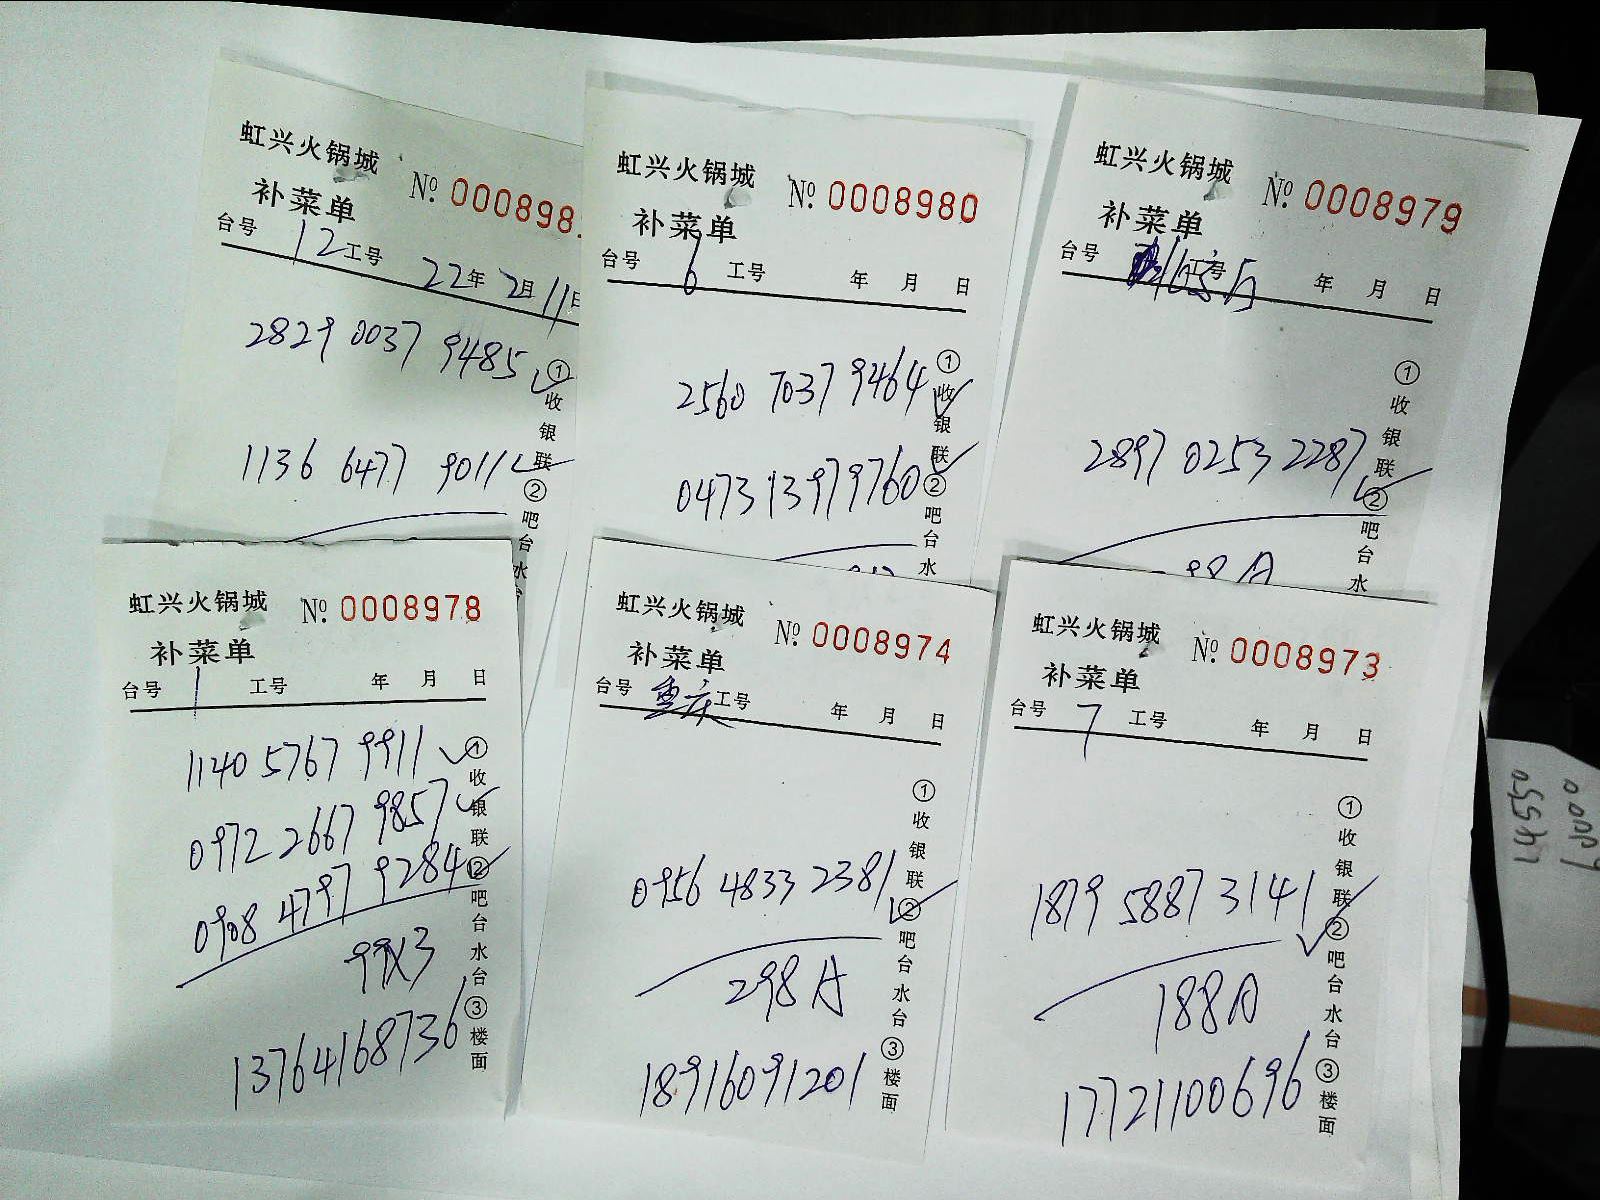 虹兴火锅城 No. 000898
补菜单
台号 12 工号 22年 2月 11日
2829 0037 9485
1136 6477 9011
①收银联②吧台水
虹兴火锅城 No. 0008980
补菜单
台号 6 工号 年 月 日
2560 7037 9464
0473 1397 9760
①收银联②吧台水
虹兴火锅城 No. 0008979
补菜单
台号 工号 年 月 日
2897 0253 2287
98A
①收银联②吧台水
虹兴火锅城 No. 0008978
补菜单
台号 1 工号 年 月 日
1140 5767 9911
0972 2667 9857
0908 4797 9284
99X3
13764168736
①收银联②吧台水台③楼面
虹兴火锅城 No. 0008974
补菜单
台号 重庆 工号 年 月 日
0956 4833 2381
298A
18916091201
①收银联②吧台水台③楼面
虹兴火锅城 No. 0008973
补菜单
台号 7 工号 年 月 日
1879 5887 3141
188A
17721100696
①收银联②吧台水台③楼面